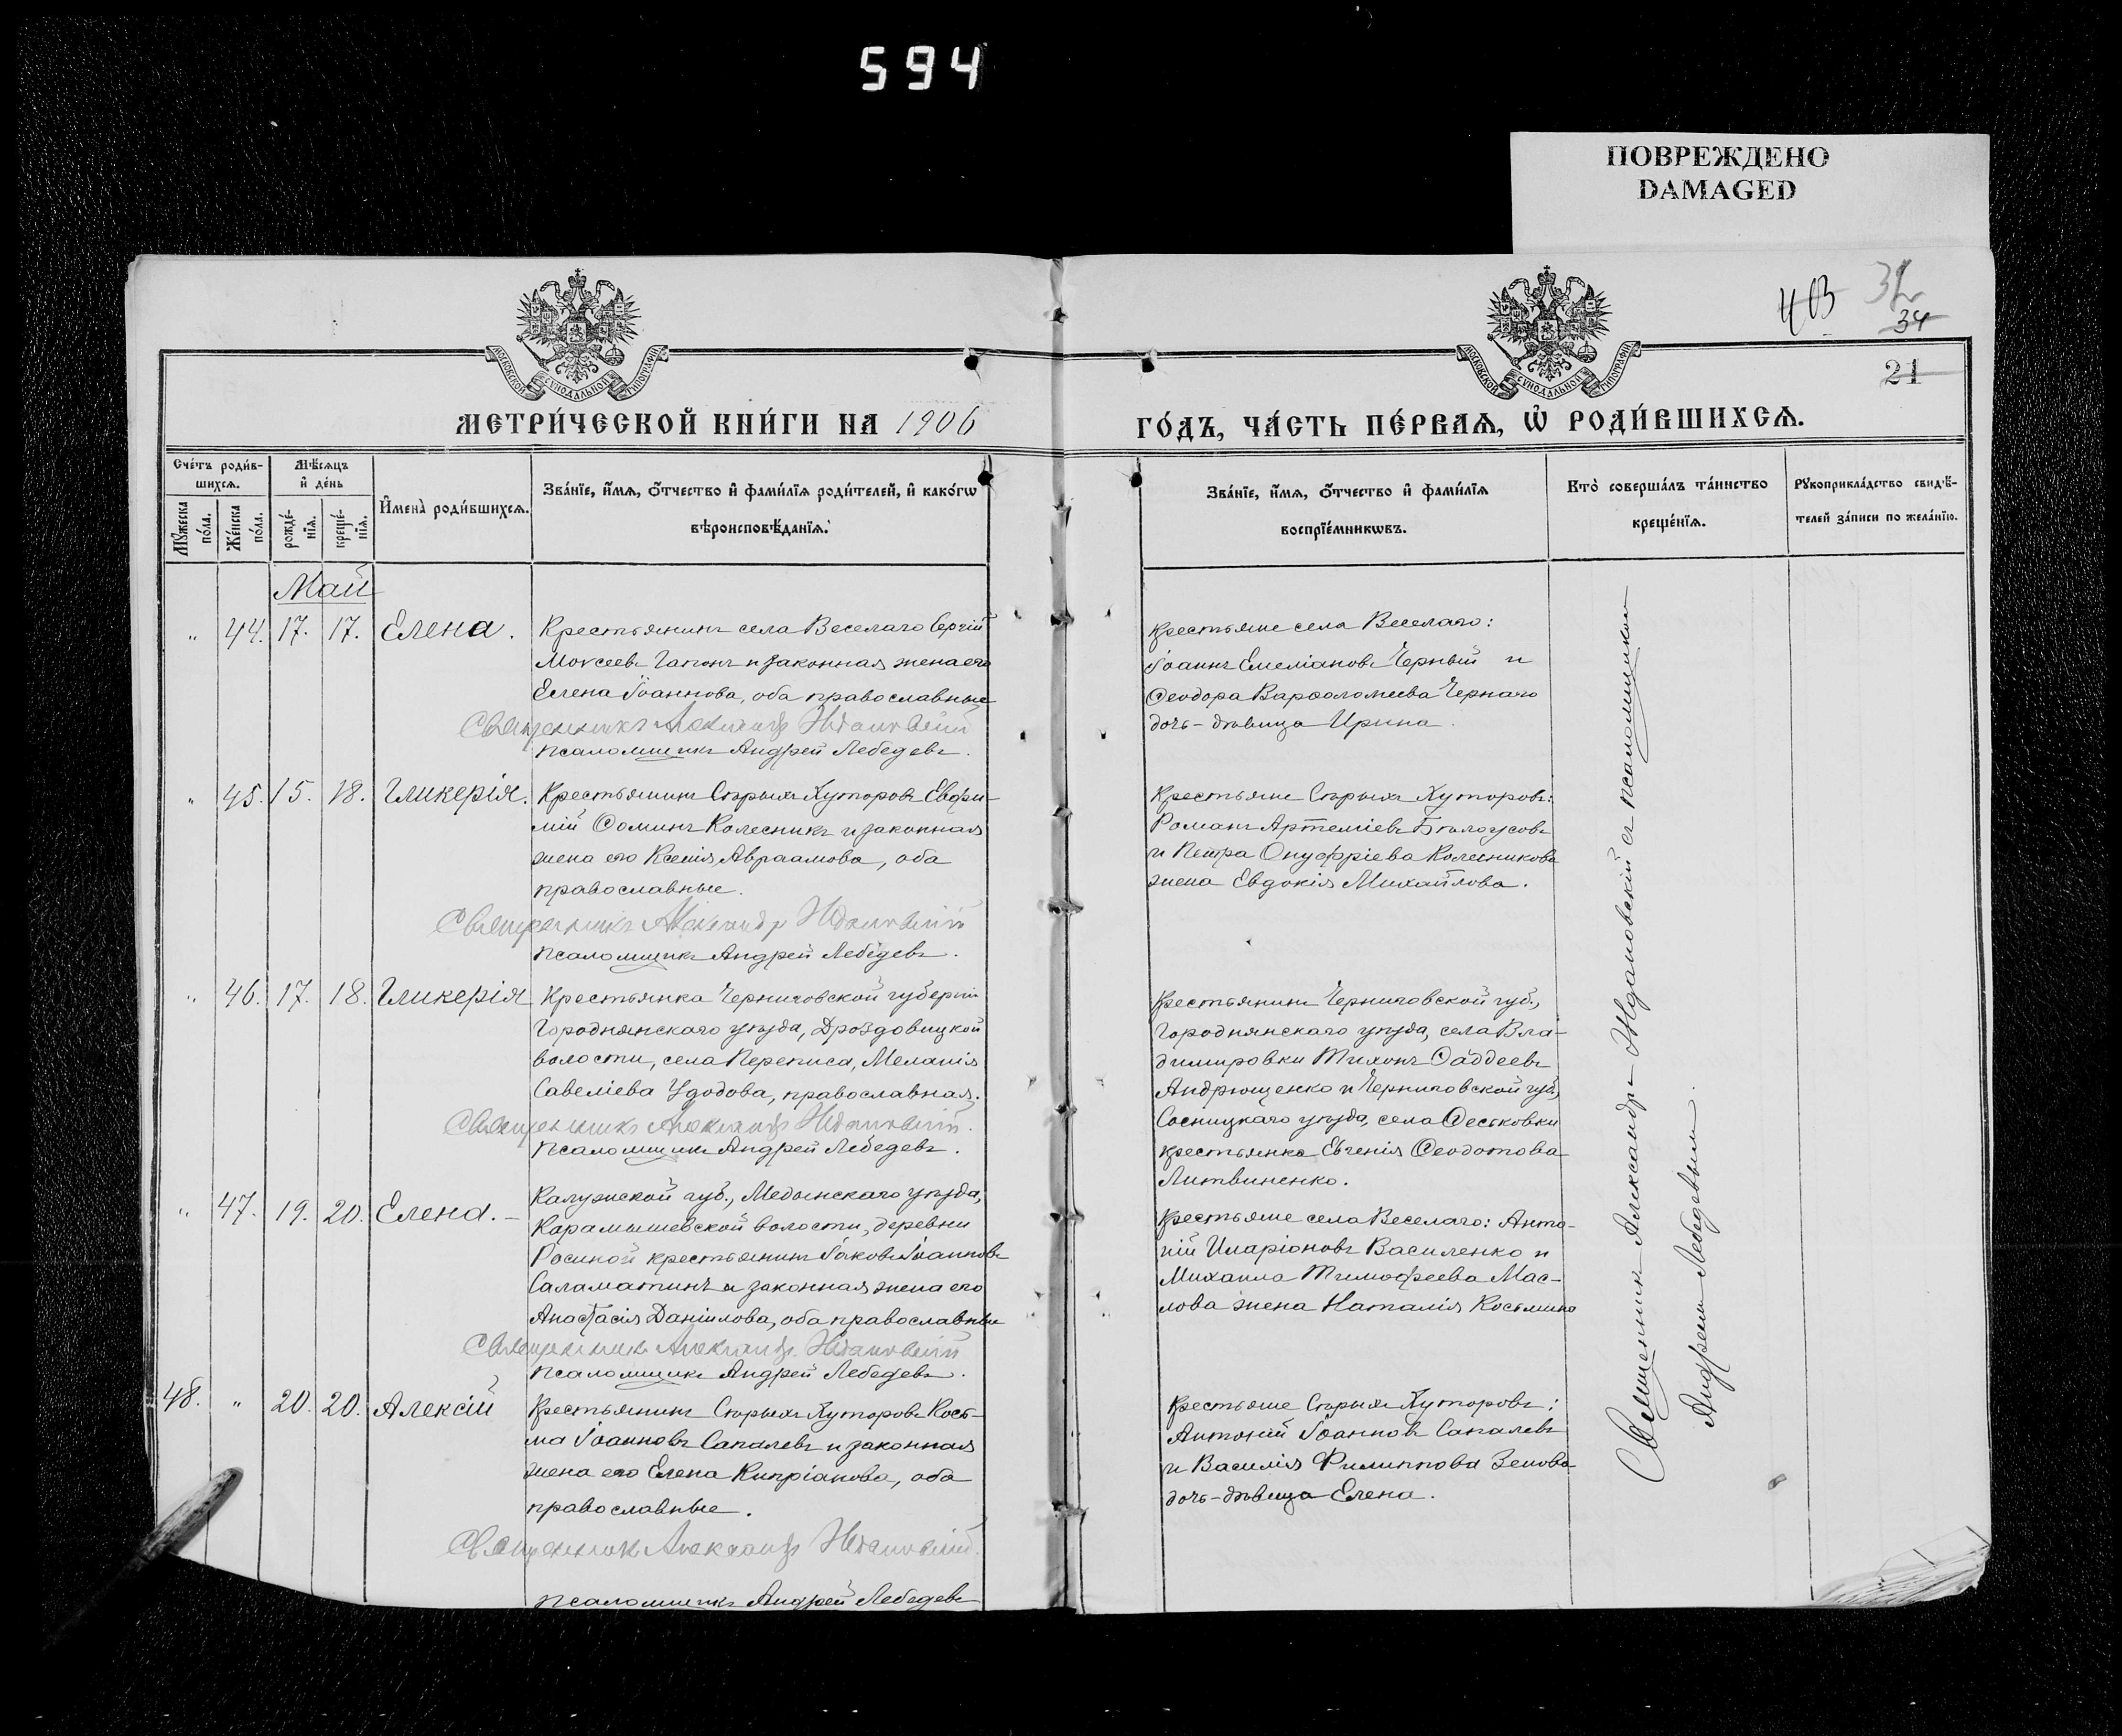 594
ПОВРЕЖДЕНО
DAMAGED
403
32
34
21
МОСКОВСКОЙ СѴНОДАЛЬНОЙ ТИПОГРАФІИ
МОСКОВСКОЙ СѴНОДАЛЬНОЙ ТИПОГРАФІИ
МЕТРИ́ЧЕСКОЙ КНИ́ГИ НА 1906
ГО́ДЪ, ЧА́СТЬ ПЕ́РВАѦ, Ѡ҆ РОДИ́ВШИХСѦ.
Сче́тъ роди́в-
шихсѧ.
Мѣ́сѧцъ
и҆ де́нь
Мꙋ́жеска
по́ла.
Же́нска
по́ла.
рожде́-
нїѧ.
креще́-
нїѧ.
И҆мена̀ роди́вшихсѧ.
Зва́нїе, и҆́мѧ, ѻ҆́тчество и҆ фами́лїѧ роди́телей, и҆ како́гѡ
вѣроисповѣ́данїѧ.
Зва́нїе, и҆́мѧ, ѻ҆́тчество и҆ фами́лїѧ
воспрїе́мникѡвъ.
Кто̀ соверша́лъ та́инство
креще́нїѧ.
Рꙋкоприкла́дство свидѣ́-
телей за́писи по жела́нїю.
Май
" 44. 17. 17. Елена.
Крестьянинъ села Веселаго Сергій
Моѵсеевъ Гапонъ и законная жена его
Елена Іоаннова, оба православные
Священникъ Александръ Ждановскій
псаломщикъ Андрей Лебедевъ.
крестьяне села Веселаго:
Іоаннъ Емеліановъ Черный и
Ѳеодора Варѳоломеева Чернаго
дочь-дѣвица Ирина.
" 45. 15. 18. Гликерія.
Крестьянинъ Старыхъ Хуторовъ Евфи-
мій Ѳоминъ Колесникъ и законная
жена его Ксенія Авраамова, оба
православные.
Священникъ Александръ Ждановскій
псаломщикъ Андрей Лебедевъ.
Крестьяне Старыхъ Хуторовъ:
Романъ Артеміевъ Бѣлоусовъ
и Петра Онуфріева Колесникова
жена Евдокія Михайлова.
" 46. 17. 18. Гликерія
Крестьянка Черниговской губерніи
Городнянскаго уѣзда, Дроздовицкой
волости, села Переписа, Меланія
Савеліева Удодова, православная.
Священникъ Александръ Ждановскій.
псаломщикъ Андрей Лебедевъ.
Крестьянинъ Черниговской губ.,
Городнянскаго уѣзда, села Вла-
димировки Тихонъ Ѳаддеевъ
Андрющенко и Черниговской губ.,
Сосницкаго уѣзда, села Ѳеськовки
крестьянка Евгенія Ѳеодотова
Литвиненко.
" 47. 19. 20. Елена. –
Калужской губ., Медынскаго уѣзда,
Карамышевской волости, деревни
Росиной крестьянинъ Іаковъ Іоанновъ
Саламатинъ и законная жена его
Анастасія Даніилова, оба православные
Священникъ Александръ Ждановскій
псаломщикъ Андрей Лебедевъ.
Крестьяне села Веселаго: Анто-
ній Иларіоновъ Василенко и
Михаила Тимофеева Мас-
лова жена Наталія Косьмина
48. " 20. 20. Алексій
Крестьянинъ Старыхъ Хуторовъ Кось-
ма Іоанновъ Сапалевъ и законная
жена его Елена Кипріанова, оба
православные.
Священникъ Александръ Ждановскій.
псаломщикъ Андрей Лебедевъ
Крестьяне Старыхъ Хуторовъ:
Антоній Іоанновъ Сапалевъ
и Василія Филиппова Зенова
дочь-дѣвица Елена.
Священникъ Александръ Ждановскій съ псаломщикомъ
Андреемъ Лебедевымъ.